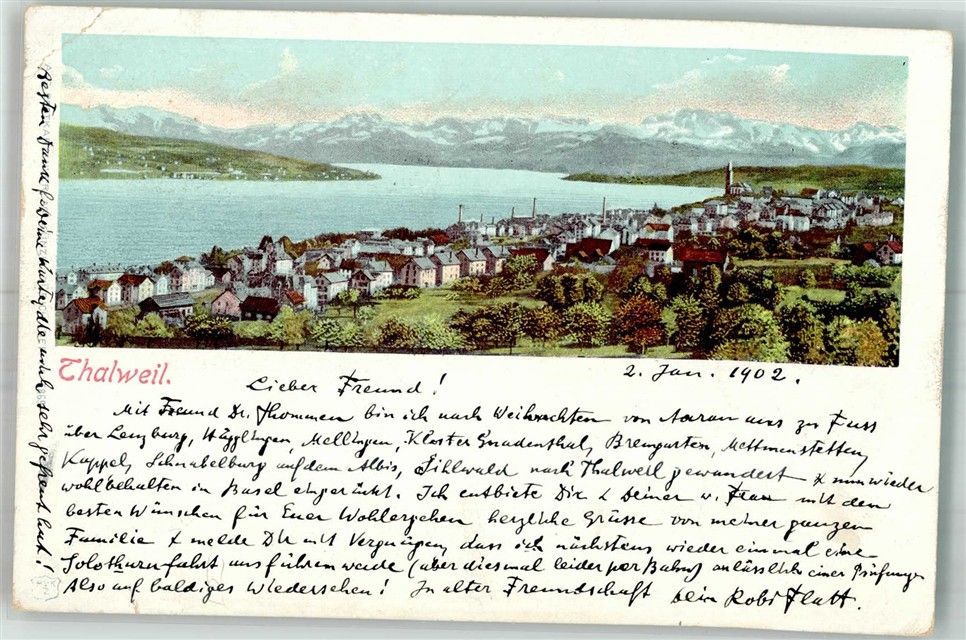 Thalweil.
2. Jan. 1902.
Lieber Freund!
Mit Freund Dr. Thommen bin ich nach Weihnachten von Aarau aus zu Fuss
über Lenzburg, Hägglingen, Mellingen, Kloster Gnadenthal, Bremgarten, Mettmenstetten,
Kappel, Schnabelburg auf dem Albis, Sihlwald nach Thalweil gewandert & nun wieder
wohlbehalten in Basel eingerückt. Ich entbiete Dir & Deiner v. Frau mit den
besten Wünschen für Euer Wohlergehen herzliche Grüsse von meiner ganzen
Familie & melde Dir mit Vergnügen, dass ich nächstens wieder einmal eine
Solothurnfahrt ausführen werde (aber diesmal leider per Bahn) anlässlich einer Prüfung.
Also auf baldiges Wiedersehen! In alter Freundschaft dein Robi Flatt.
Besten Dank f. deine Karte, die mich sehr gefreut hat!